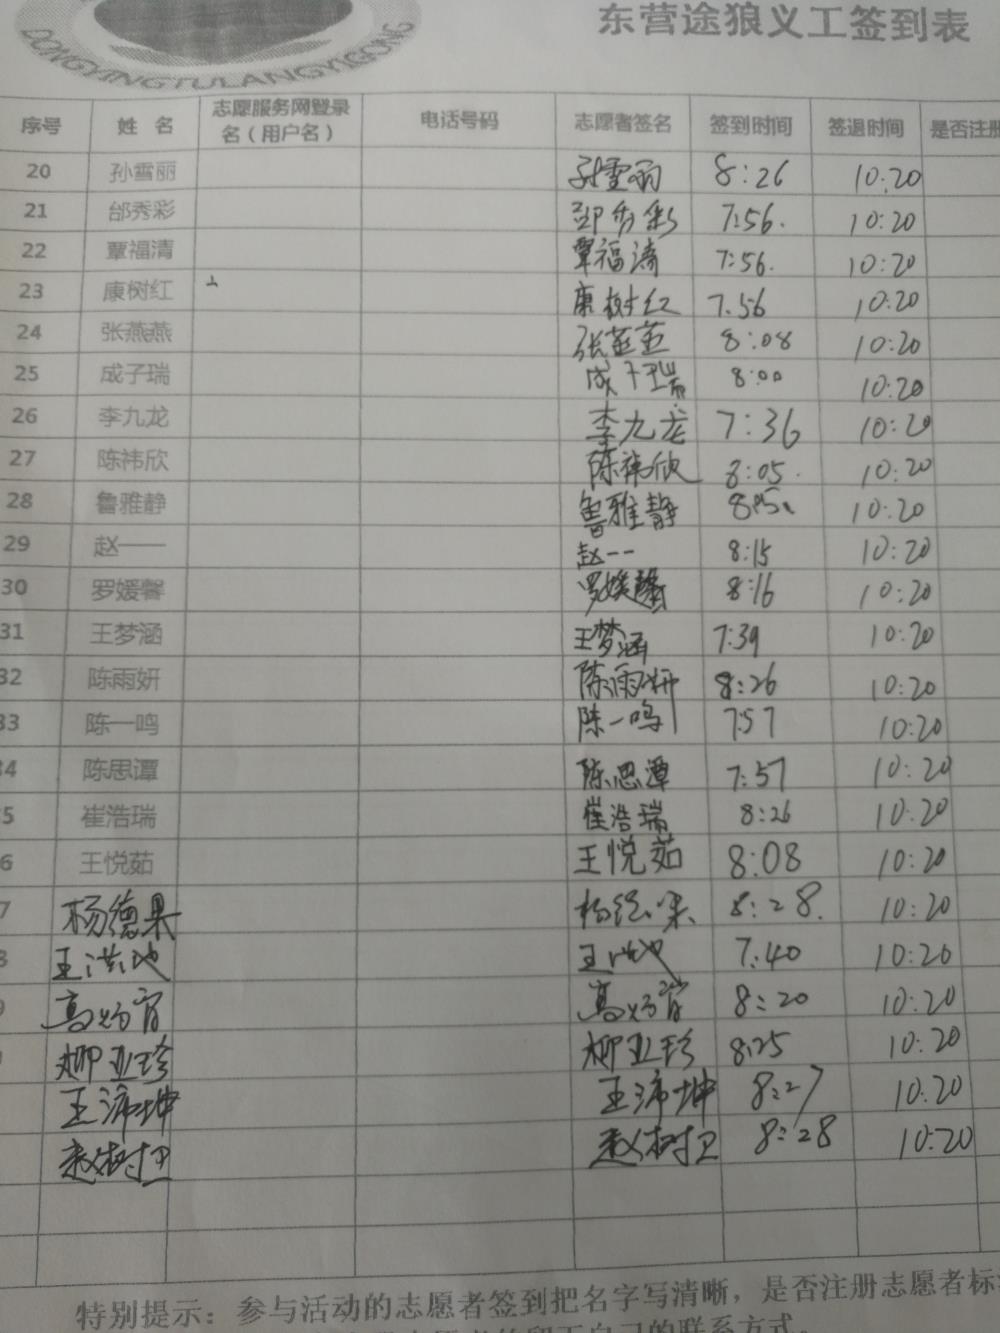 DONGYINGTULANGYIGONG
东营途狼义工签到表
序号 姓 名 志愿服务网登录名（用户名） 电话号码 志愿者签名 签到时间 签退时间 是否注册
20 孙雪丽 孙雪丽 8:26 10:20
21 邰秀彩 邰秀彩 7:56. 10:20
22 覃福清 覃福清 7:56. 10:20
23 康树红 康树红 7.56 10:20
24 张燕燕 张莲莲 8:08 10:20
25 成子瑞 成子瑞 8:00 10:20
26 李九龙 李九龙 7:36 10:20
27 陈祎欣 陈祎欣 8:05. 10:20
28 鲁雅静 鲁雅静 10:20
29 赵一一 赵一一 8:15 10:20
30 罗媛馨 罗媛馨 8:16 10:20
31 王梦涵 王梦涵 7:39 10:20
32 陈雨妍 陈雨妍 8:26 10:20
33 陈一鸣 陈一鸣 7:57 10:20
34 陈思谭 陈思潭 7:57 10:20
5 崔浩瑞 崔浩瑞 8:26 10:20
6 王悦茹 王悦茹 8:08 10:20
7 杨德果 杨德果 8:28. 10:20
王洪池 王洪池 7:40 10:20
高 高 8:20 10:20
柳亚珍 柳亚珍 8:25 10:20
王沛坤 王沛坤 8:27 10:20
赵树卫 赵树卫 8:28 10:20
特别提示：参与活动的志愿者签到把名字写清晰，是否注册志愿者标
自己的联系方式。